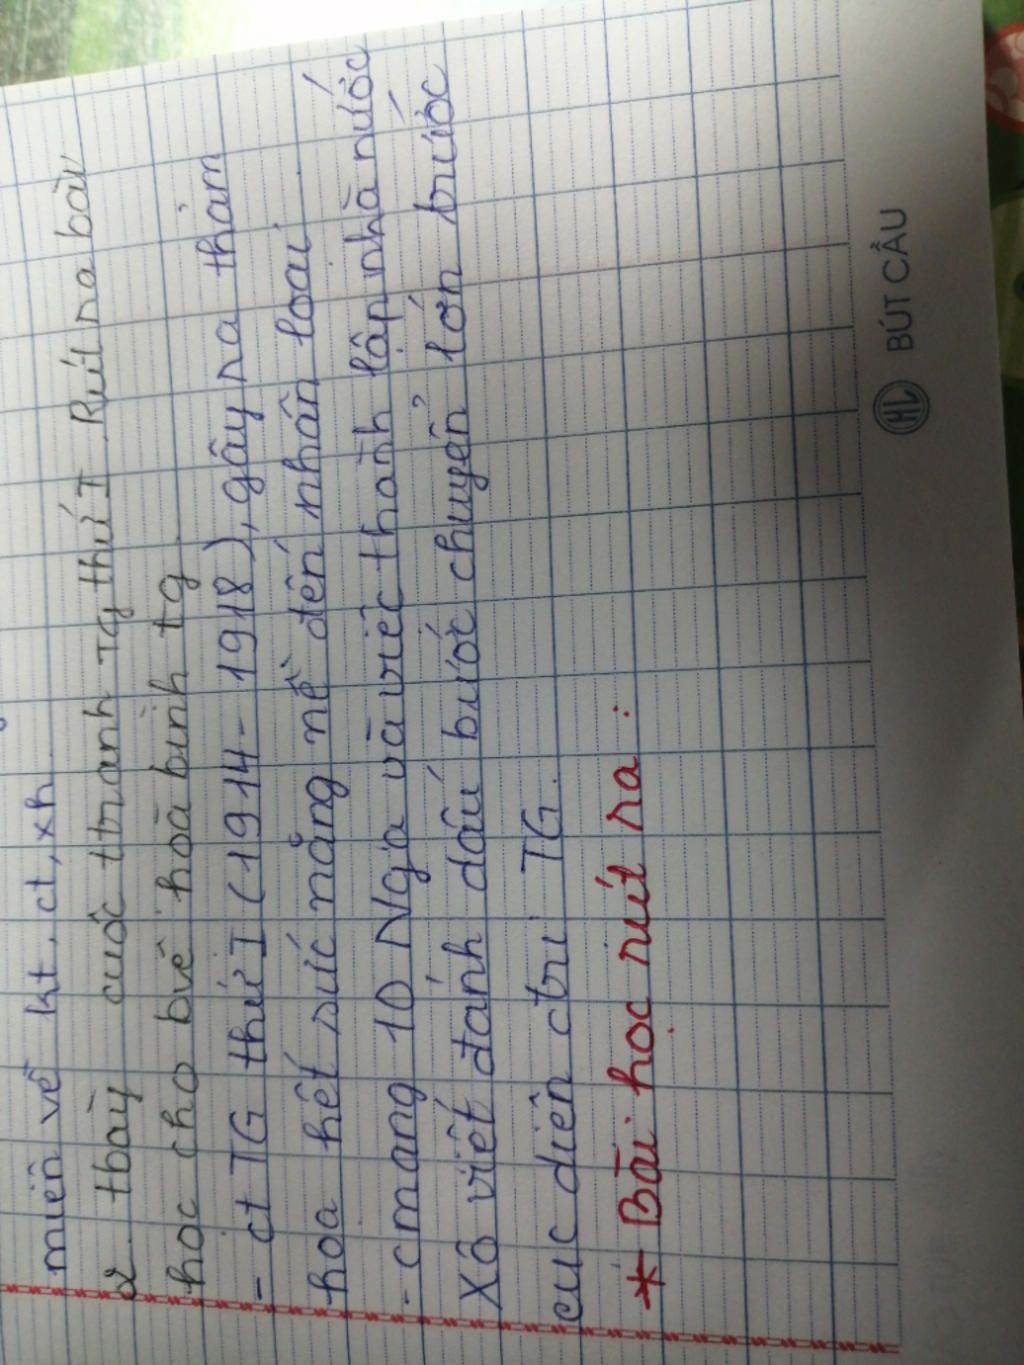 miền về kt, ct, xh.
2. tbày cuộc tranh TG thứ I. Rút ra bài
học cho bvề hoà bình tg.
- ct TG thứ I (1914 - 1918), gây ra thảm
hoạ hết sức nặng nề đến nhân loại.
- cmạng 10 Nga và việc thành lập nhà nước
Xô viết đánh dấu bước chuyển lớn trước
cục diện ctrị TG.
* Bài học rút ra :
HL BÚT CẦU